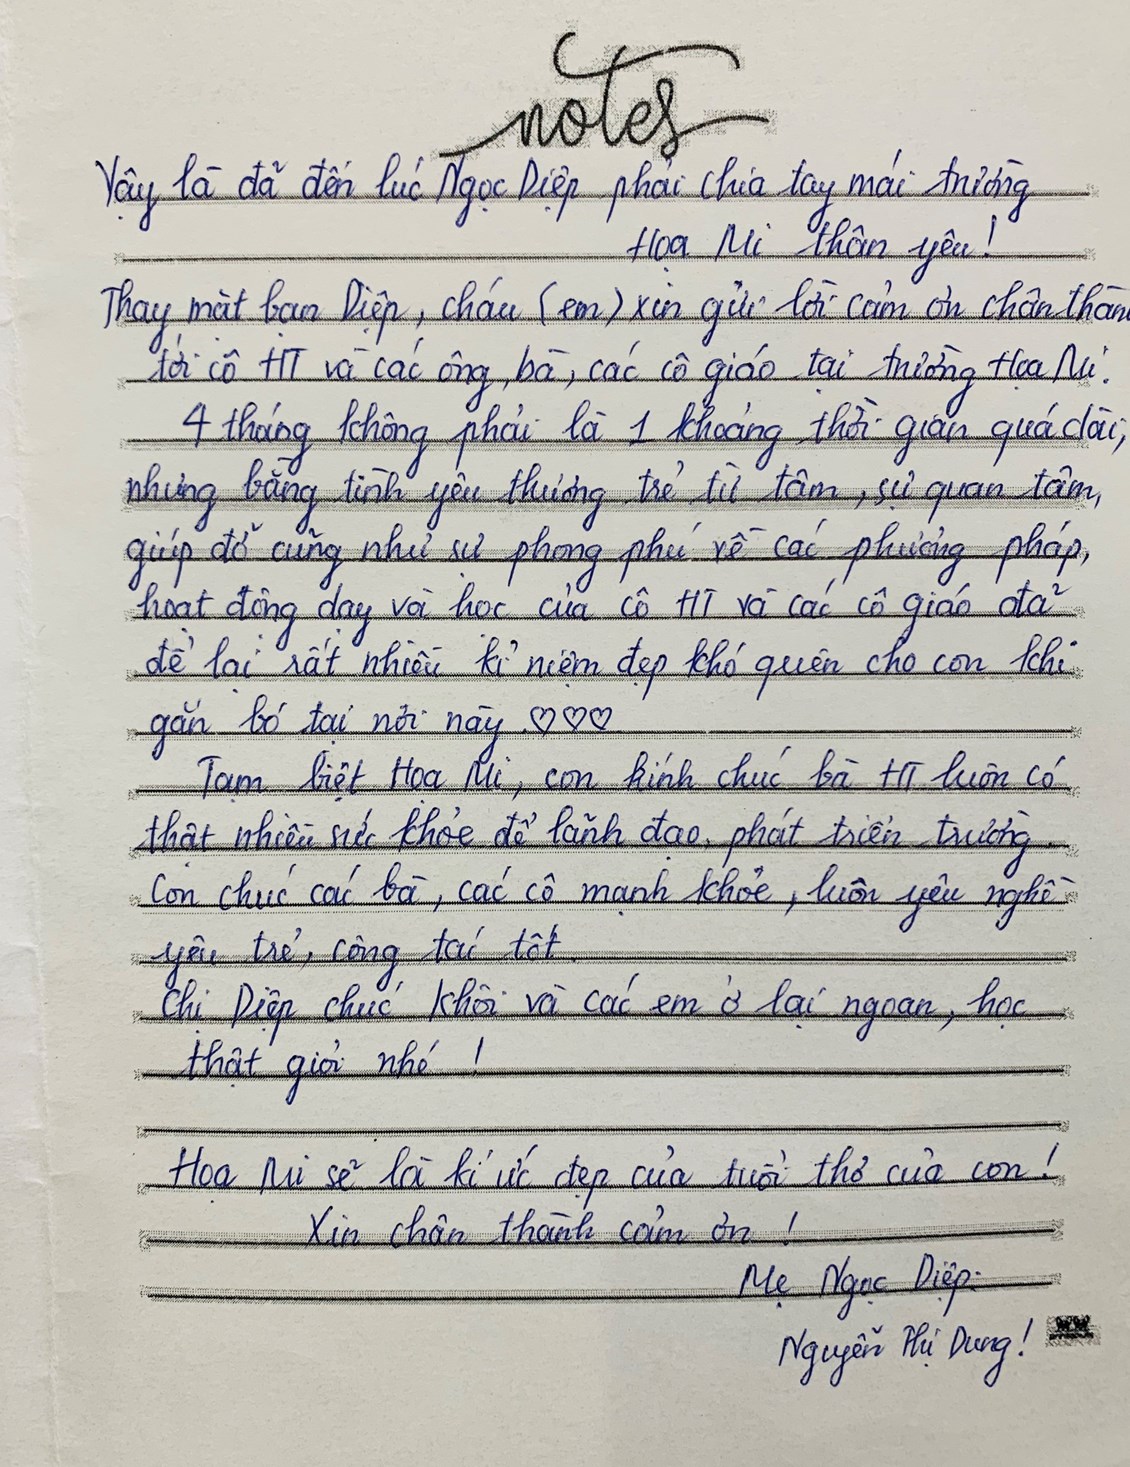 notes
Vậy là đã đến lúc Ngọc Diệp phải chia tay mái trường
Họa Mi thân yêu!
Thay mặt bạn Diệp, cháu (em) xin gửi lời cảm ơn chân thàn
tới cô HT và các ông, bà, các cô giáo tại trường Họa Mi.
4 tháng không phải là 1 khoảng thời gian quá dài,
nhưng bằng tình yêu thương trẻ từ tâm, sự quan tâm,
giúp đỡ cũng như sự phong phú về các phương pháp,
hoạt động dạy và học của cô HT và các cô giáo đã
để lại rất nhiều kỉ niệm đẹp khó quên cho con khi
gắn bó tại nơi này ♡♡♡
Tạm biệt Họa Mi, con kính chúc bà HT luôn có
thật nhiều sức khỏe để lãnh đạo, phát triển trường.
Con chúc các bà, các cô mạnh khỏe, luôn yêu nghề
yêu trẻ, công tác tốt.
Chị Diệp chúc Khôi và các em ở lại ngoan, học
thật giỏi nhé !
Họa Mi sẽ là kí ức đẹp của tuổi thơ của con!
Xin chân thành cảm ơn !
Mẹ Ngọc Diệp.
Nguyễn Thị Dung!